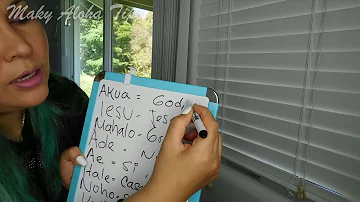 Maky Aloha Ti
Akua = God
Iesu - Jes
Mahalo - Gr
Aole - N
Ae = si
Hale = Cas
Noho =